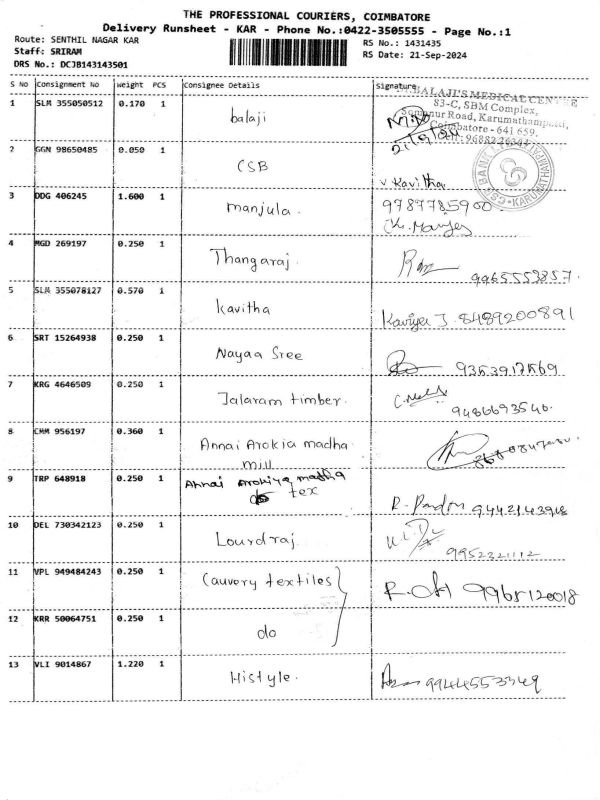 THE PROFESSIONAL COURIERS, COIMBATORE
Delivery Runsheet - KAR - Phone No.:0422-3505555 - Page No.:1
Route: SENTHIL NAGAR KAR
RS No.: 1431435
Staff: SRIRAM
RS Date: 21-Sep-2024
DRS No.: DCJB143143501
S No Consignment No Weight PCS Consignee Details Signature
BALAJI'S MEDICAL CENTRE
83-C, SBM Complex,
Road,
Coimbatore - 641 659.
1 SLM 355050512 0.170 1 balaji
21/9/24
2 GGN 98650485 0.050 1 CSB
V Kavitha
3 DDG 406245 1.600 1 manjula. 9787785900
4 MGD 269197 0.250 1 Thangaraj. 9965553857.
5 SLM 355078127 0.570 1 kavitha Kaviya J. 8489200891
6 SRT 15264938 0.250 1 Nayaa Sree
7 KRG 4646509 0.250 1 Jalaram timber. 9486693546.
8 CHM 956197 0.360 1 Annai Arokia madha
mill
9 TRP 648918 0.250 1 Annai Arokiya madha
tex
10 DEL 730342123 0.250 1 Lourdraj. 9952321112
11 VPL 949484243 0.250 1 Cauvery textiles 9965120018
12 KRR 50064751 0.250 1 do
13 VLI 9014867 1.220 1 Histyle.